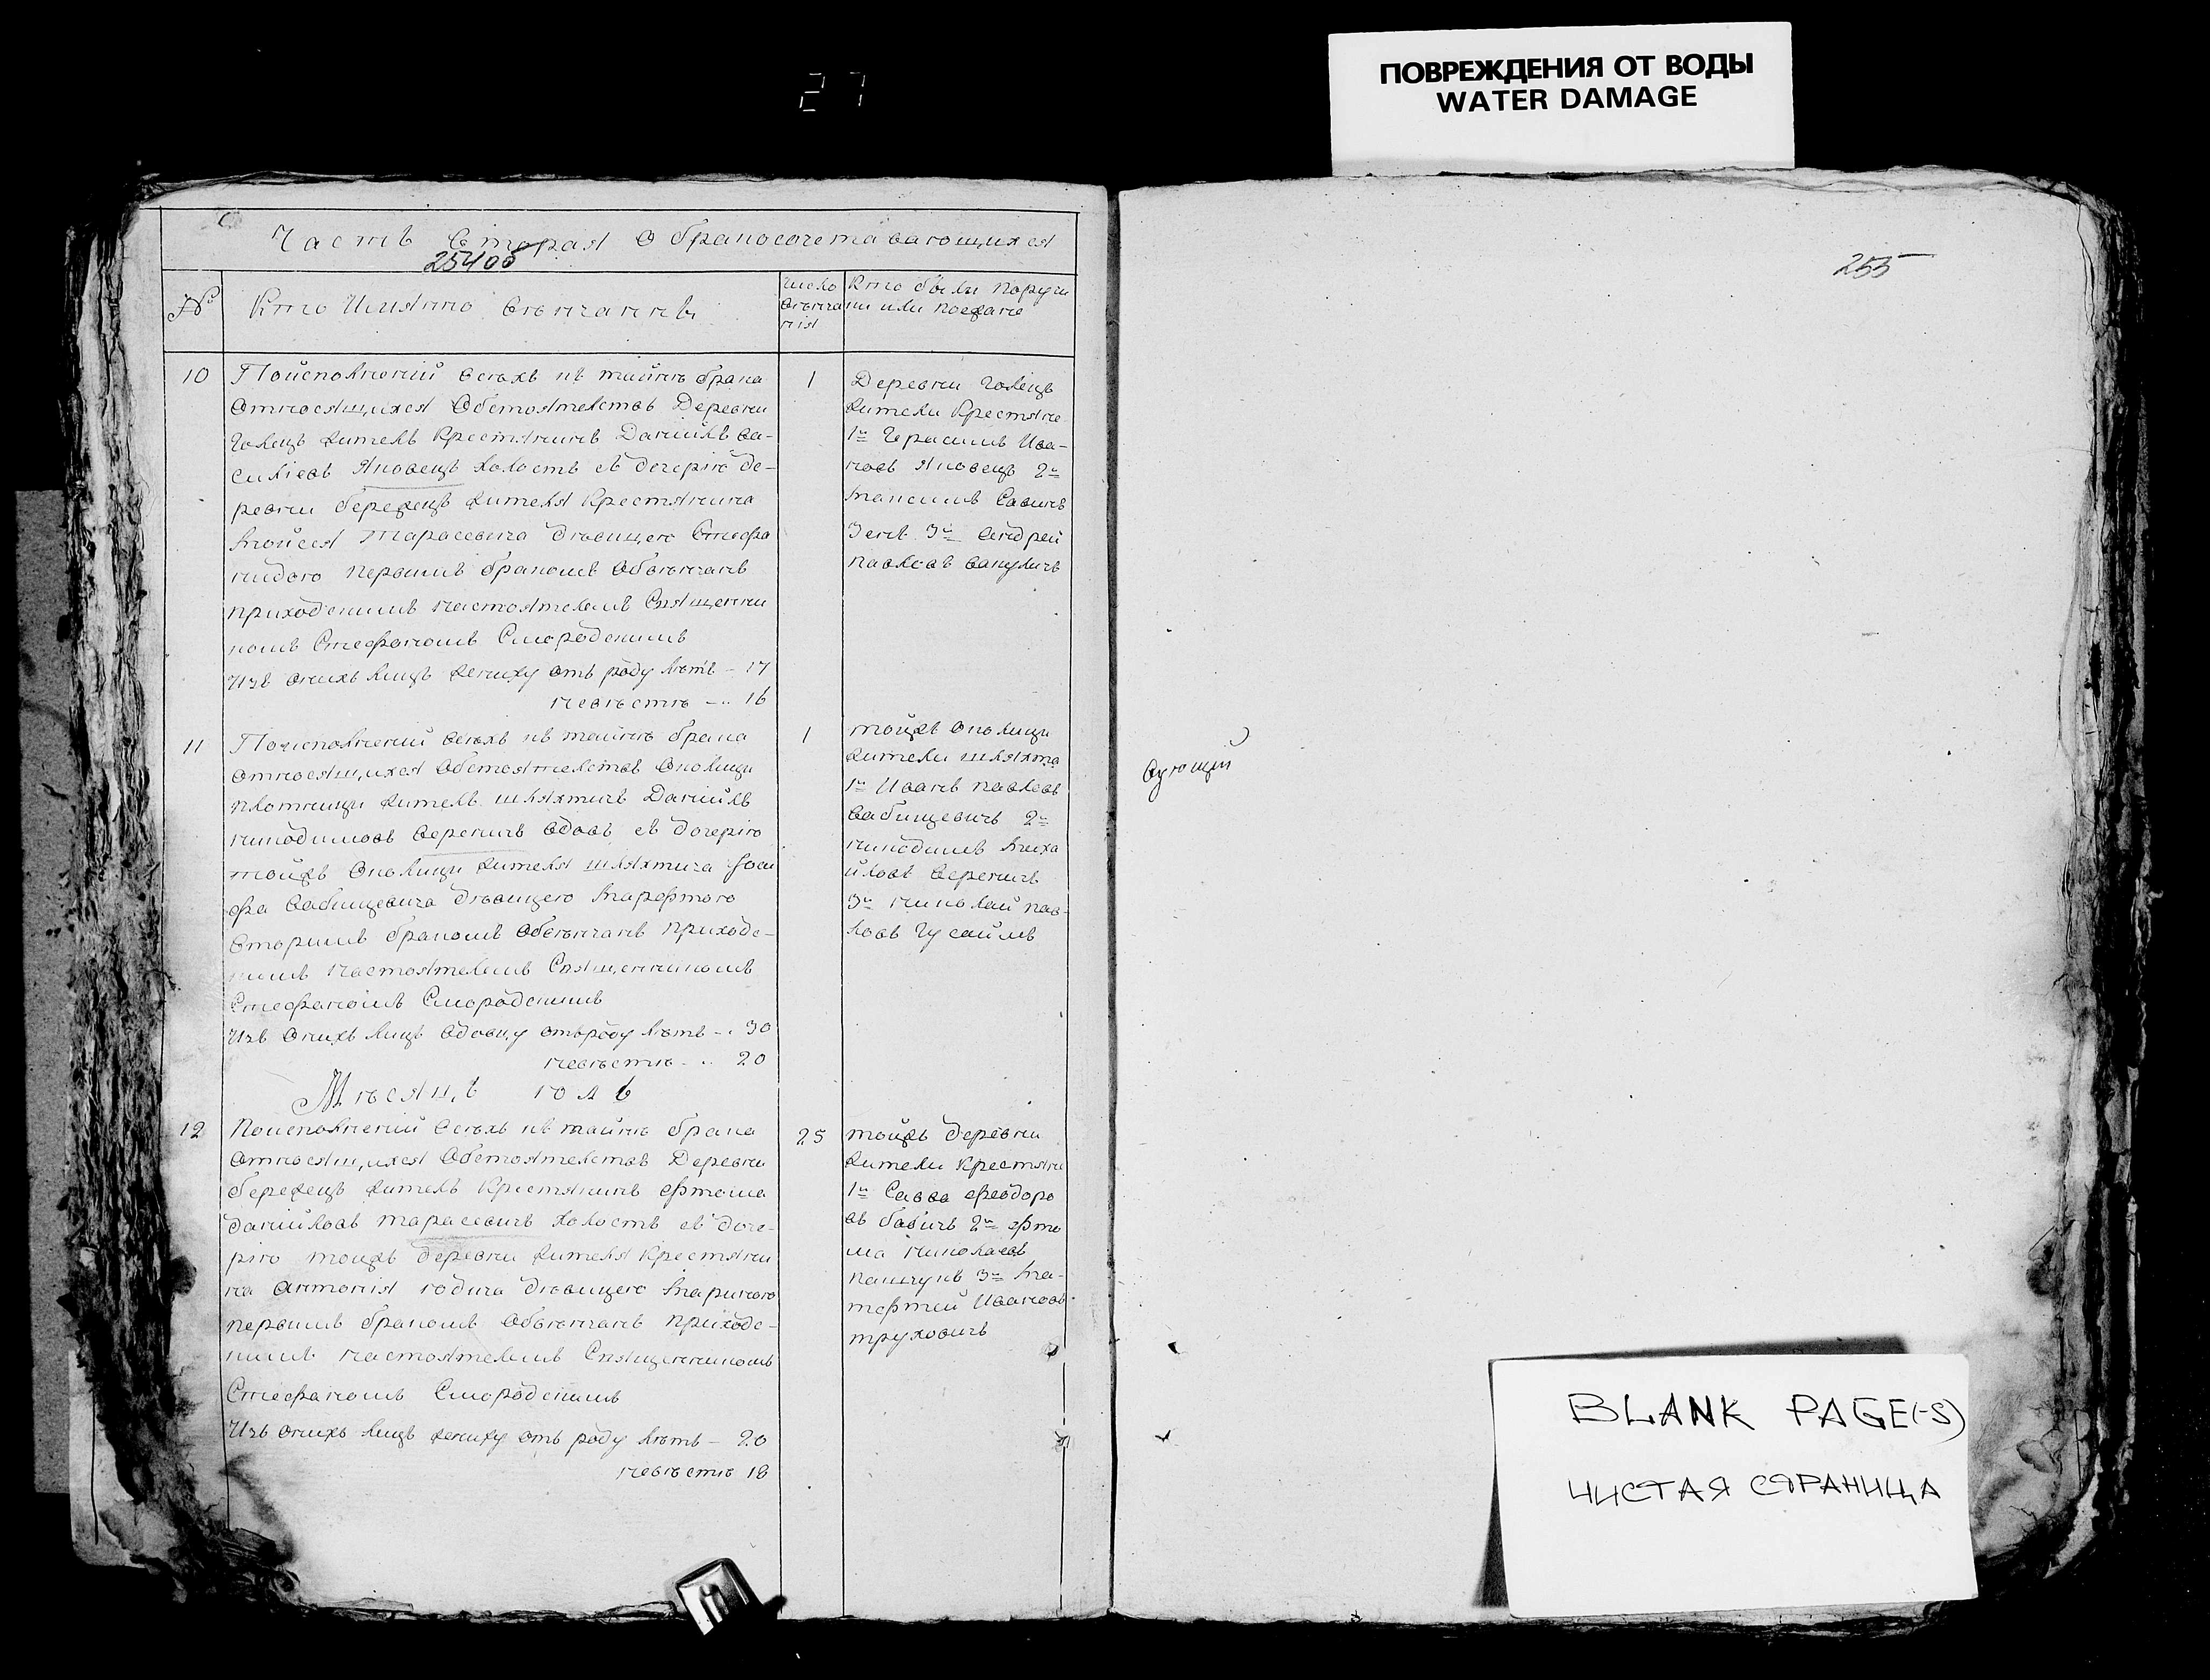 27
ПОВРЕЖДЕНИЯ ОТ ВОДЫ
WATER DAMAGE
Часть вторая о бракосочетавающихся
254об
№
Кто имянно венчаны
Число венчания
Кто были поручики или поезжане
10
Поисполнении всехъ къ тайне брака
относящихся обстоятелствъ Деревни
Голецъ жителъ крестянинъ Даниилъ Ва-
силіевъ Яковецъ холостъ съ дочерію де-
ревни бережецъ жителя крестянина
Моисея Тарасевича девицею Стефа
нидою первимъ бракомъ обвенчанъ
приходскимъ настоятелемъ Священни
комъ Стефаномъ Смородскимъ
Изъ оныхъ лицъ жениху отъ роду летъ – 17
невесте – 16
1
Деревни Голецъ
жители крестяне
1й Герасимъ Ива-
новъ Яковецъ 2й
Максимъ Савинъ
3й Андрей
павловъ
11
Поисполнении всехъ къ тайне брака
относящихся обстоятелствъ околици
плотници жителъ шляхтичъ Даниилъ
никодимовъ Вереничъ вдовъ съ дочерію
тойжъ околици жителя шляхтича Іоси
фа Вабищевича девицею Марфтою
вторимъ бракомъ обвенчанъ приходс-
кимъ настоятелемъ Священникомъ
Стефаномъ Смородскимъ
Изъ онихъ лицъ вдовцу отъ роду летъ – 30
невесте – 20
1
тойжъ околици
жители шляхта
1й Иванъ павловъ
Вабищевичъ 2й
никодимъ Миха
йловъ Вереничъ
3й николай пав-
ловъ
Месяцъ юль
12
Поисполнении всехъ къ тайне брака
относящихся обстоятелствъ Деревни
бережецъ жителъ крестянинъ фтома
Данииловъ тарасевичъ холостъ съ доче-
рію тоижъ деревни жителя крестяни
на антонія годича девицею Мариною
первимъ бракомъ обвенчанъ приходс-
кимъ настоятелемъ Священникомъ
Стефаномъ Смородскимъ
Изъ онихъ лицъ жениху отъ роду летъ – 20
невесте 18
25
тойжъ деревни
жители крестяне
1й Савва феодоро
въ бабичъ 2й фто
ма николаевъ
3й Ма-
тфтей Ивановъ
труховичъ
255
вующий
BLANK PAGE(-S)
ЧИСТАЯ СТРАНИЦА